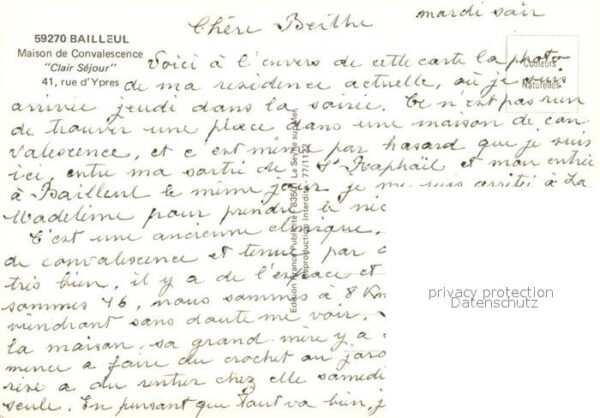 mardi soir
Chère Berthe
59270 BAILLEUL
Maison de Convalescence
"Clair Séjour"
41, rue d'Ypres
Couleurs
Naturelles
Voici à l'envers de cette carte la photo
de ma résidence actuelle, où je suis
arrivée jeudi dans la soirée. Ce n'est pas rien
de trouver une place dans une maison de con
valescence, et c'est même par hasard que je suis
ici, entre ma sortie de St Raphaël et mon entrée
à Bailleul le même jour je me suis arrêté à La
Madeleine pour prendre le
C'est une ancienne clinique,
de convalescence et tenue par
très bien, il y a de l'espace et
sommes 46, nous sommes à 8 Km
viendront sans doute me voir.
la maison, sa grand mère y a
mence a faire du crochet au
a du rentrer chez elle samedi
seule. En pensant que tout va bien, j
privacy protection
Datenschutz